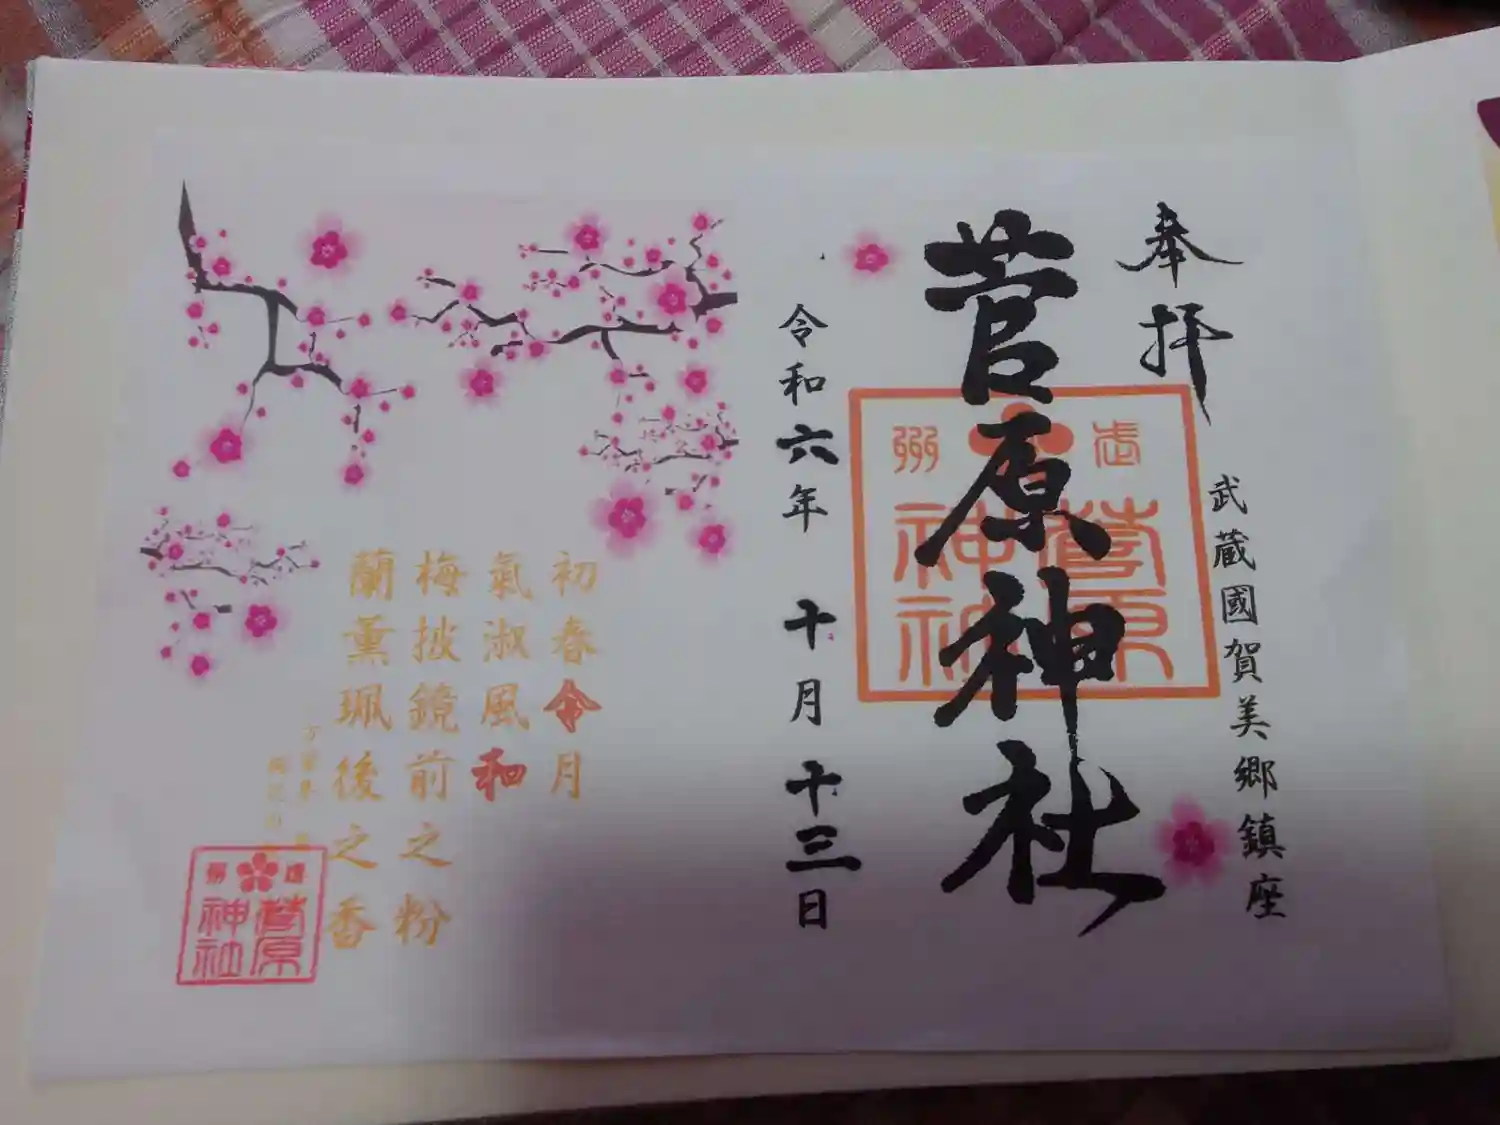 奉拝
武蔵國賀美郷鎮座
菅原神社
武州
菅原
神社
令和六年 十月 十三日
初春令月
氣淑風和
梅披鏡前之粉
蘭薫珮後之香
菅原
神社